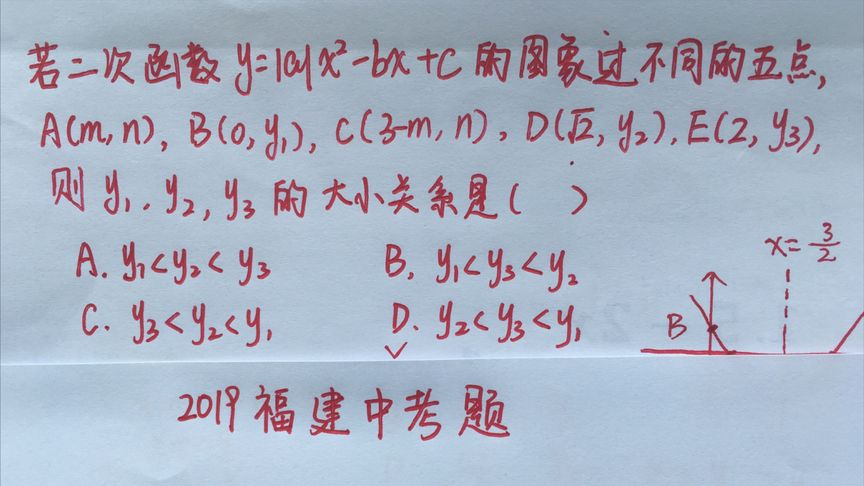 若二次函数 y=|a|x²-bx+c 的图象过不同的五点,
A(m,n), B(0,y₁), C(3-m,n), D(√2,y₂), E(2,y₃),
则 y₁、y₂, y₃ 的大小关系是( )
A. y₁<y₂<y₃ B. y₁<y₃<y₂
C. y₃<y₂<y₁ D. y₂<y₃<y₁
✓
x=3/2
B
2019福建中考题